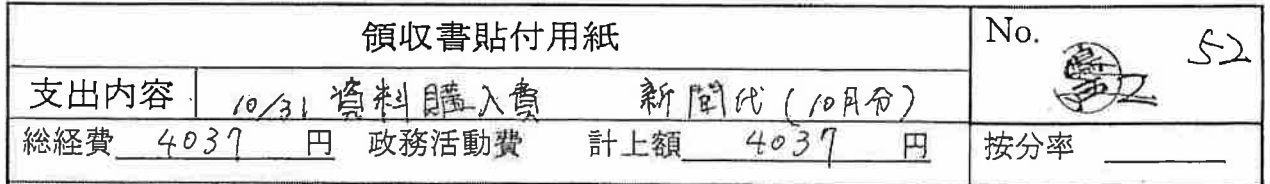 領収書貼付用紙
No. 52
支出内容 10/31 資料購入費 新聞代(10月分)
総経費 4037 円 政務活動費 計上額 4037 円 按分率